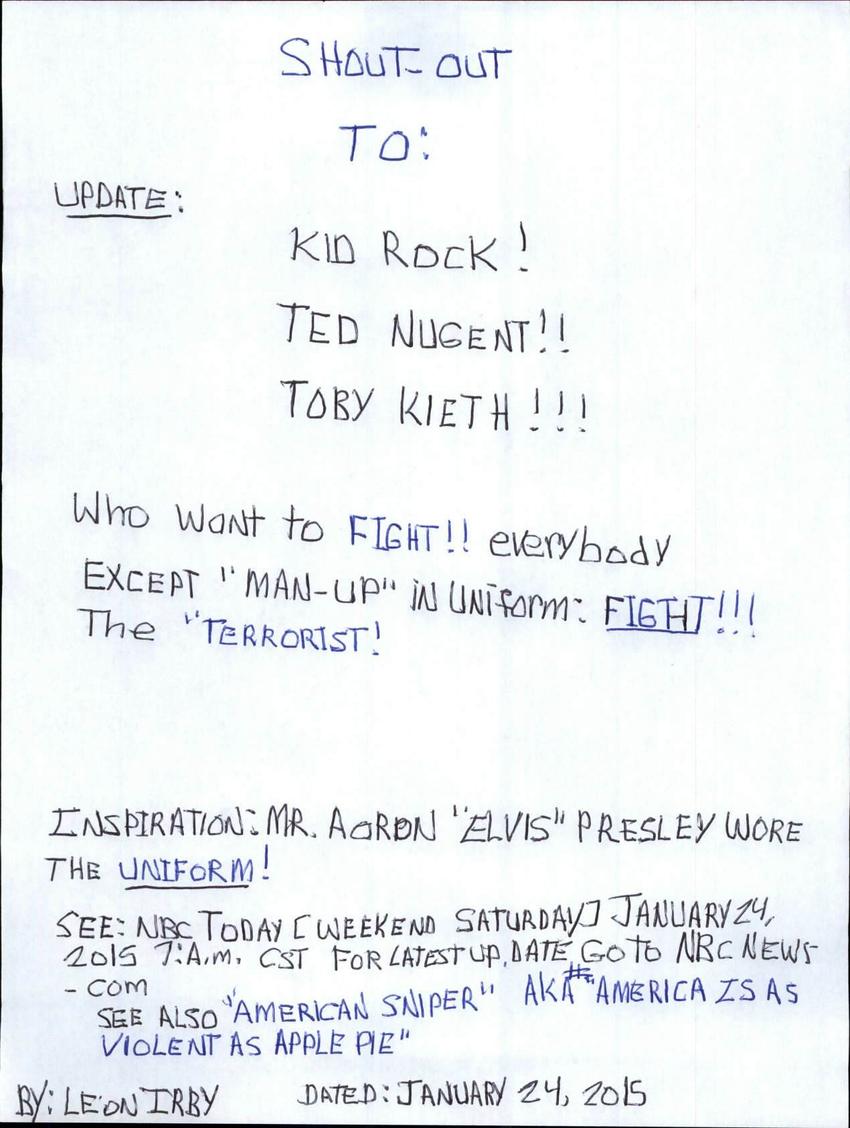 SHOUT-OUT
TO:
UPDATE:
KID ROCK!
TED NUGENT!!
TOBY KIETH!!!
Who Want to FIGHT!! everybody
EXCEPT "MAN-UP" iN UNiform: FIGHT!!!
The "TERRORIST!
INSPIRATION: MR. AARON "ELVIS" PRESLEY WORE
THE UNIFORM!
SEE: NBC TODAY [WEEKEND SATURDAY] JANUARY 24,
2015 7:A.m. CST FOR LATEST UP.DATE GO TO NBC NEWS
- COM
SEE ALSO "AMERICAN SNIPER" AKA # "AMERICA IS AS
VIOLENT AS APPLE PIE"
BY: LEON IRBY DATED: JANUARY 24, 2015